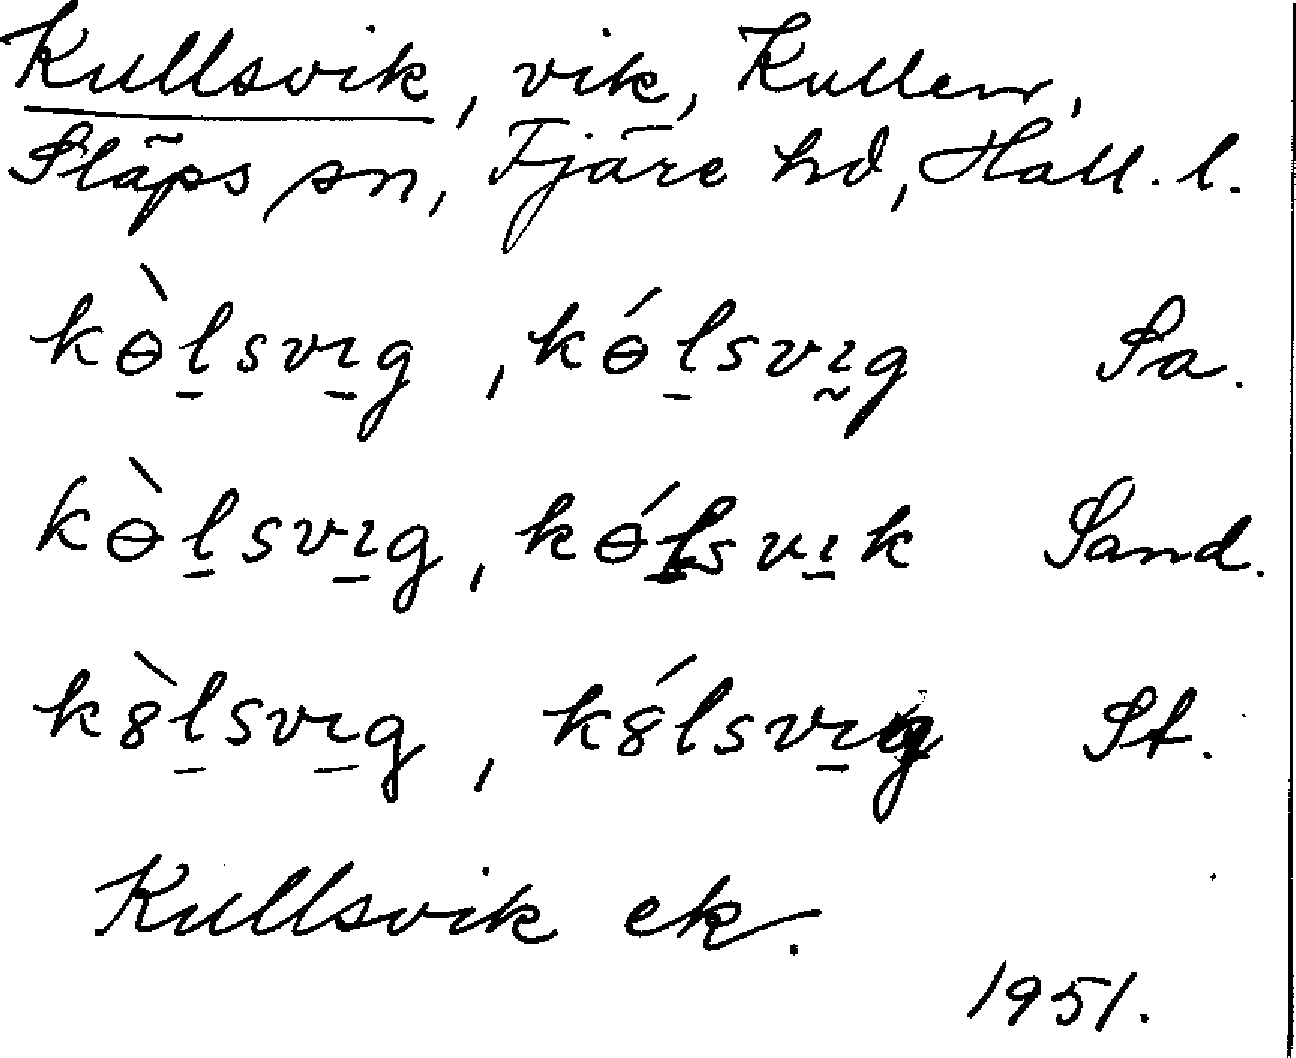 Kullsvik, vik, Kullen,
Släps sn, Fjäre hd, Hall. l.
kɵ̀l̠svı̠g, kɵ́l̠svı̰g Sa.
kɵ̀l̠svı̠g, kɵ́l̠svı̠k Sand.
k8̀l̠svı̠g, k8́lsvı̠g St.
Kullsvik ek.
1951.